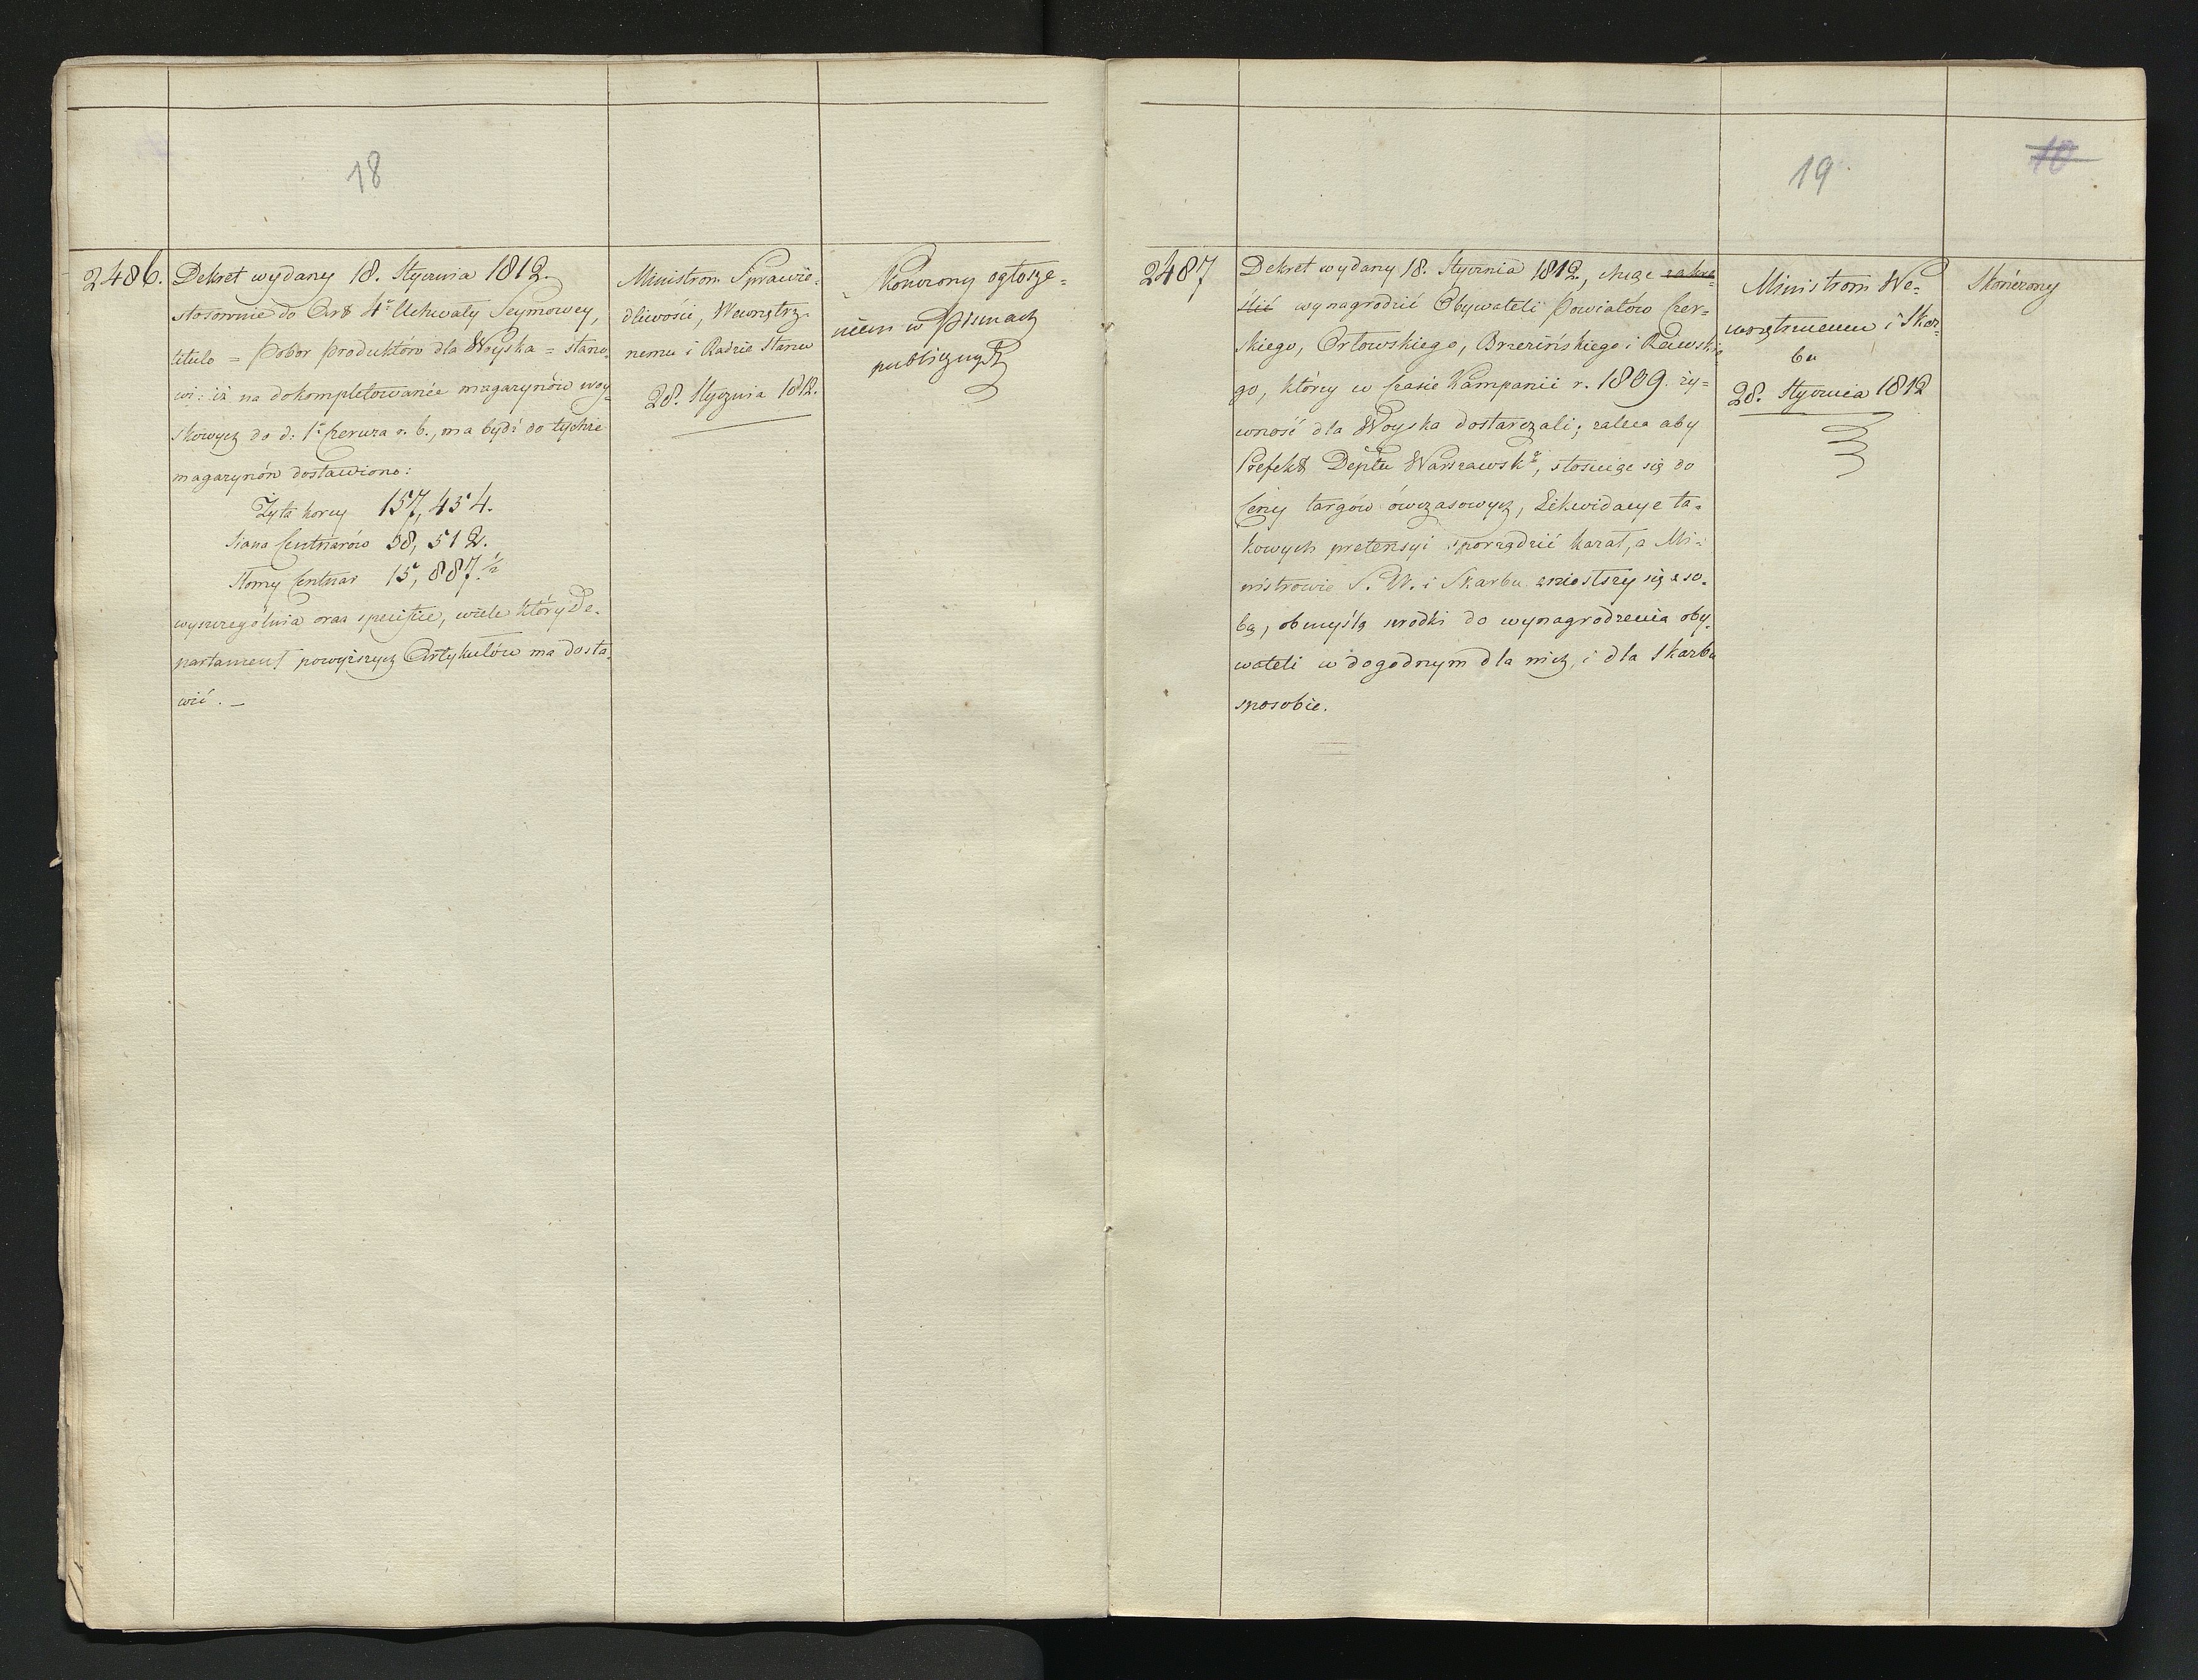 18
2486.
Dekret wydany 18. Stycznia 1812.
stosownie do Art 4º Uchwały Seymowey,
titulo = Pobor produktów dla Woyska = stano-
wi: iż na dokompletowanie magazynów woy-
skowych do d: 1º Czerwca r. b., ma bydź do tychże
magazynów dostawiono:
Żyta korcy 157,454.
Siana Centnarów 38,512.
Słomy Centnar 15,887.½
wyszczególnia oraz specifice, wiele który De-
partament powyższych Artykułów ma dosta-
wić. _
Ministrom Sprawie-
dliwości, Wewnętrz-
nemu i Radzie Stanu
28. Stycznia 1812.
Skończony ogłosze-
niem w Pismach
publicznych
19.
10
2487
Dekret wydany 18. Stycznia 1812, chcąc zakre-
ślić wynagrodzić Obywateli Powiatów Czer-
skiego, Orłowskiego, Brzezińskiego i Rawskie
go, którzy w Czasie Kampanii r. 1809. ży-
wność dla Woyska dostarczali; zaleca aby
Prefekt Deptu Warszawskº, stosuiąc się do
Ceny targów ówczasowych, Likwidacye ta-
kowych pretensyi sporządzić kazał, a Mi-
nistrowie S. W. i Skarbu zniosłszy się z so-
bą, obmyślą srodki do wynagrodzenia oby-
wateli w dogodnym dla nich, i dla Skarbu
sposobie.
Ministrom We-
wnętrznemu i Skar-
bu
28. Stycznia 1812
Skończony